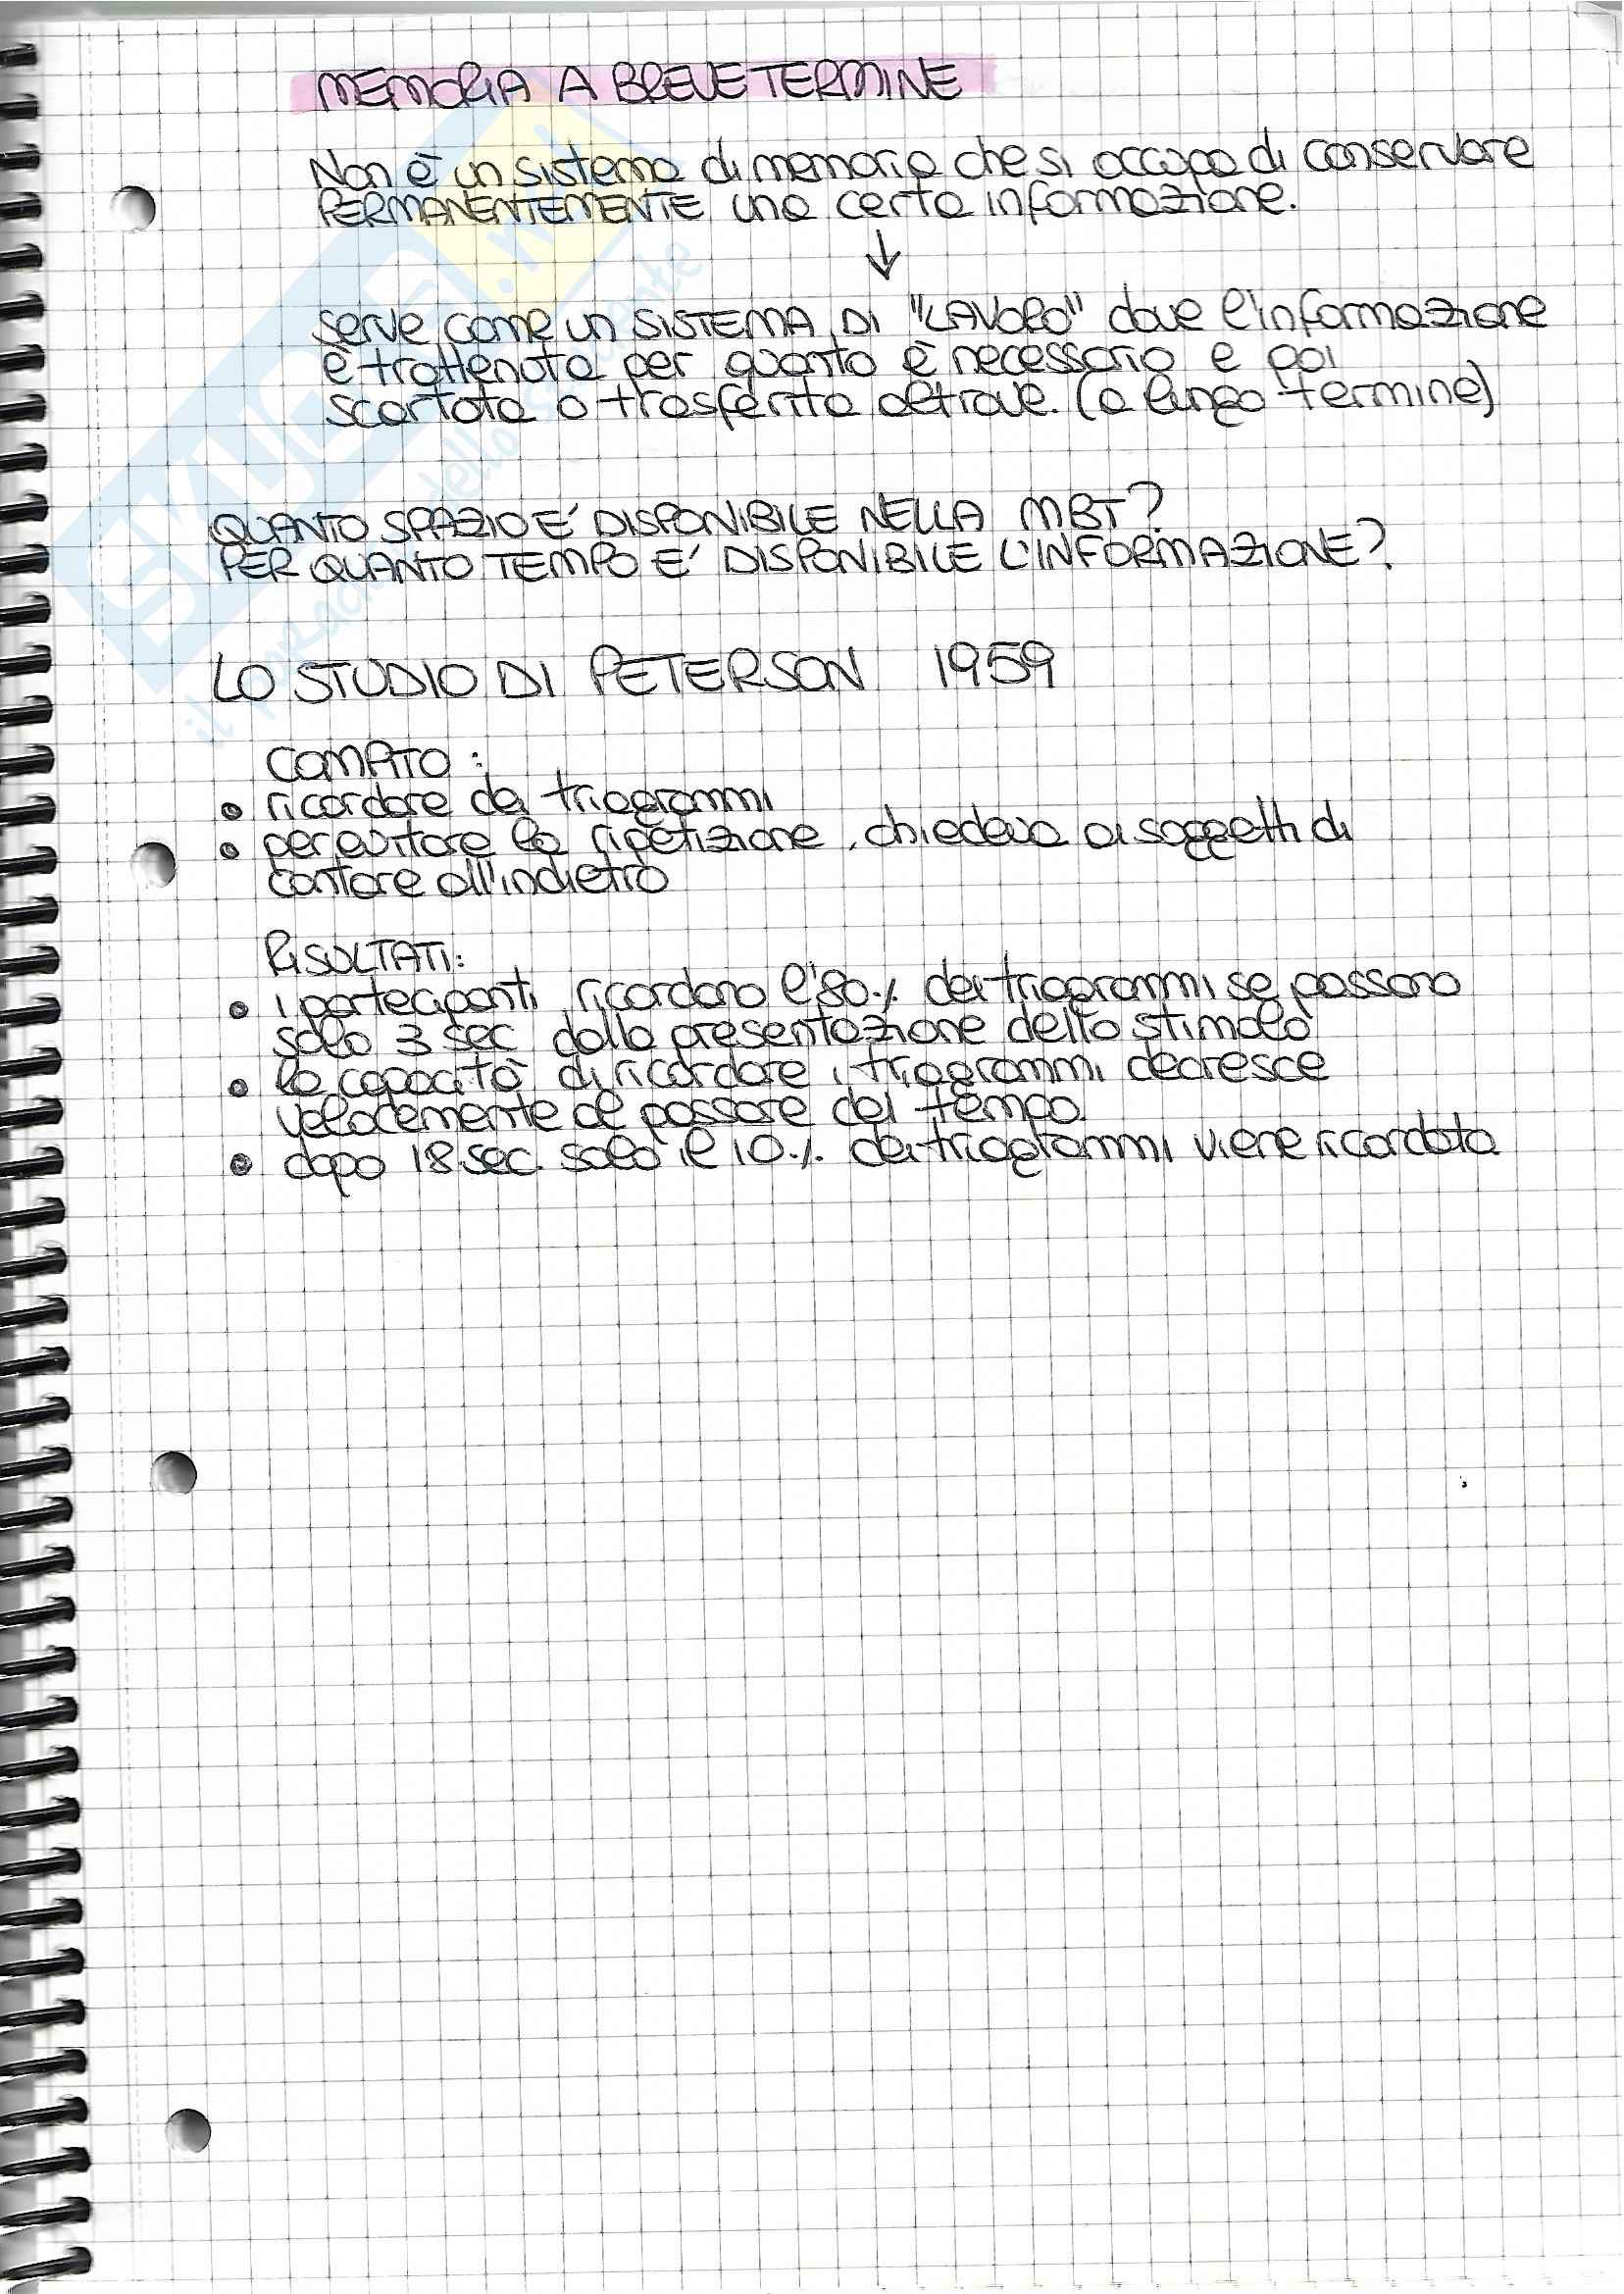 MEMORIA A BREVE TERMINE
Non è un sistema di memoria che si occupa di conservare
PERMANENTEMENTE una certa informazione.
↓
serve come un SISTEMA DI "LAVORO" dove l'informazione
è trattenuta per quanto è necessario e poi
scartata o trasferita altrove. (a lungo termine)
QUANTO SPAZIO E' DISPONIBILE NELLA MBT?
PER QUANTO TEMPO E' DISPONIBILE L'INFORMAZIONE?
LO STUDIO DI PETERSON 1959
COMPITO:
• ricordare dei triagrammi
• per evitare la ripetizione, chiedeva ai soggetti di
contare all'indietro
RISULTATI:
• i partecipanti ricordano l'80% dei triagrammi se passano
solo 3 sec dalla presentazione dello stimolo
• la capacità di ricordare i triagrammi decresce
velocemente al passare del tempo.
• dopo 18 sec. solo il 10% dei triagrammi viene ricordata